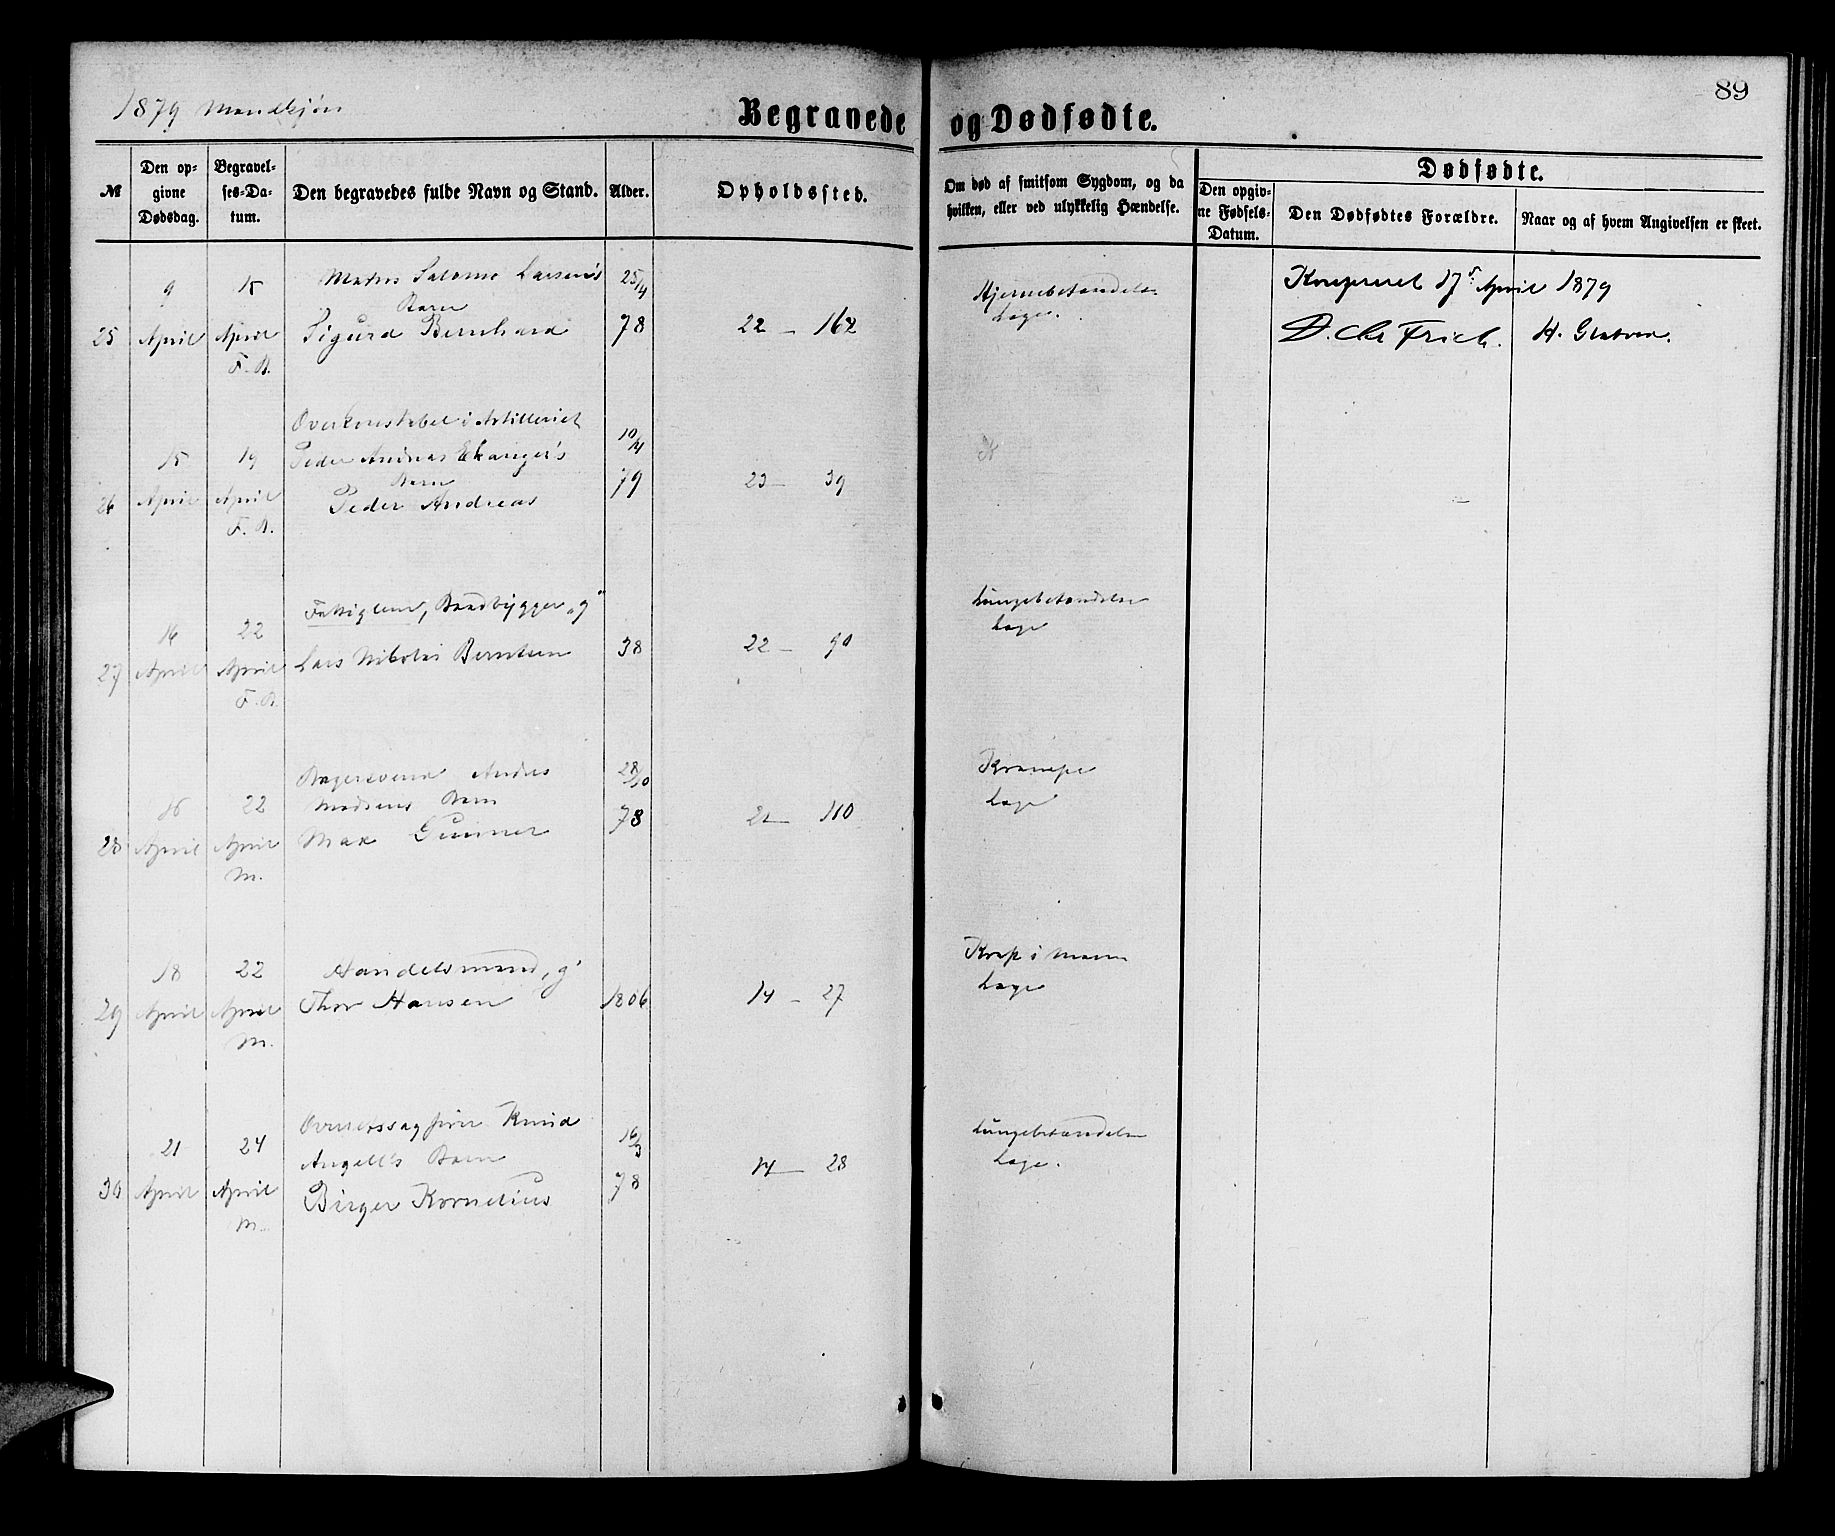 89
1879 Mandkjøn
Begravede og Dødfødte.
№
Den op-
givne
Dødsdag.
Begravel-
ses-Da-
tum.
Den begravedes fulde Navn og Stand.
Alder.
Opholdssted.
Om død af smitsom Sygdom, og da
hvilken, eller ved ulykkelig Hændelse.
Dødfødte.
Den opgiv-
ne Fødsels-
Datum.
Den Dødfødtes Forældre.
Naar og af hvem Angivelsen er skeet.
25
9
April
15
April
F. B.
Salomo Larsen's
Barn
Sigurd Bernhard
25/4
78
22 — 162
Hjernebetændelse
Læge.
17 April 1879
D. Chr Frich.
H.
26
15
April
19
April
F. B.
Overkonstabel i Artilleriet
Peder Andreas Ekanger's
Barn
Peder Andreas
10/4
79
23 — 39
27
16
April
22
April
F. B.
Fattiglem, Baadbygger „g"
Lars Nikolai Berntsen
38
22 — 90
Lungebetændelse
Læge
28
16
April
22
April
M.
Bagersvend Andr
Madsens Barn
Max Gunner
28/10
78
21 — 110
Krampe
Læge
29
18
April
22
April
M.
Handelsmand, g'
Thor Hansen
1806
14 — 27
Kræft i Maven
Læge
30
21
April
24
April
M.
Overretssagfører Knud
Angell's Barn
Birger Kornelius
16/3
78
14 — 28
Lungebetændelse
Læge.